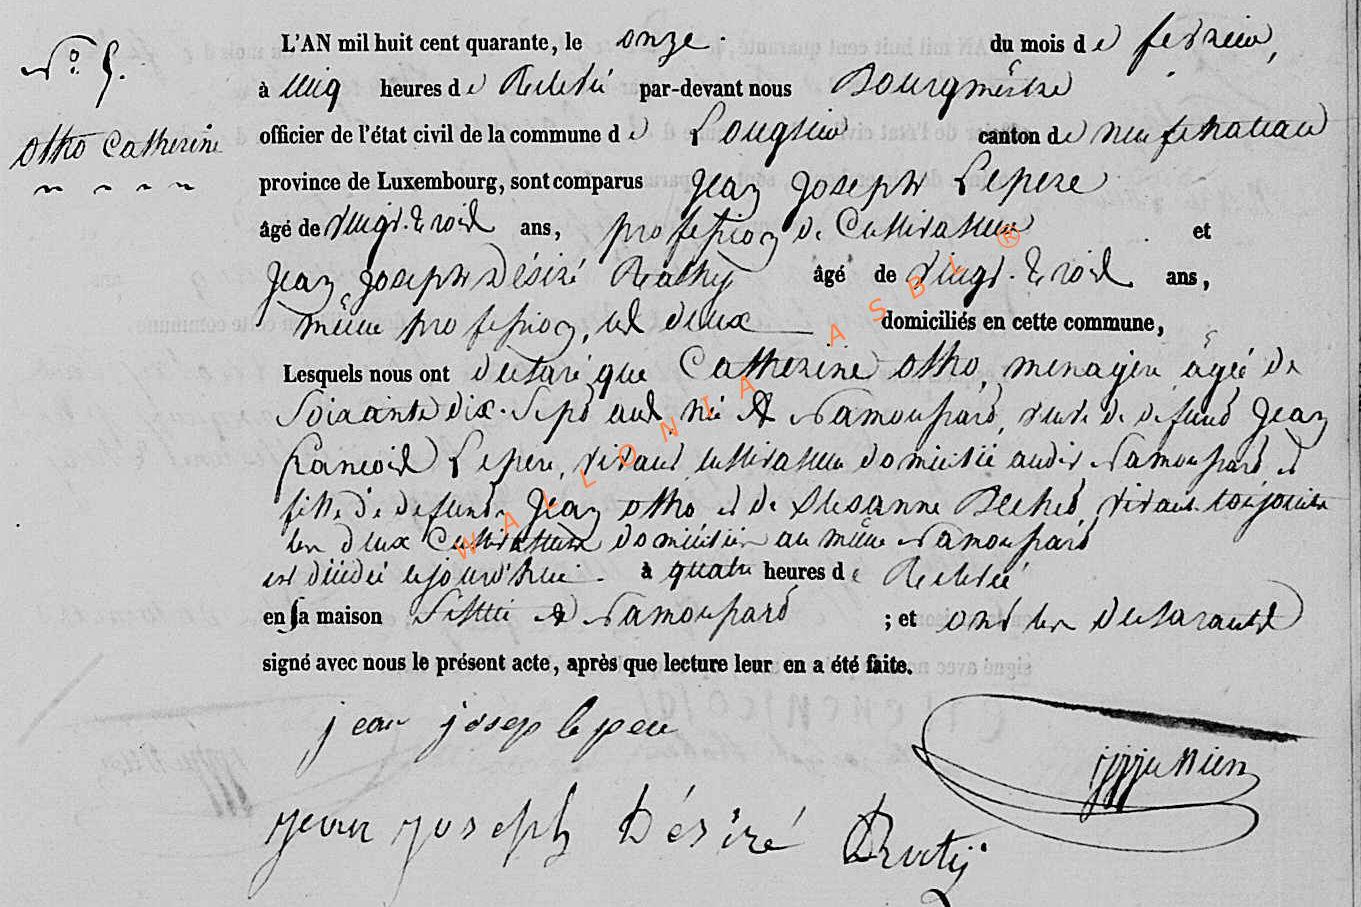 N° 5.
Otho Catherine
L'AN mil huit cent quarante, le onze du mois de fevrier,
à cinq heures de Relevé par-devant nous Bourgmestre
officier de l'état civil de la commune de Longlier canton de neufchateau
province de Luxembourg, sont comparus Jean Joseph Lepere
âgé de vingt-trois ans, profession de Cultivateur et
Jean Joseph Désiré âgé de vingt-trois ans,
même profession, les deux domiciliés en cette commune,
Lesquels nous ont declaré que Catherine Otho, menagere âgée de
Soixante dix-Sept ans, née à Namoussard, veuve de defunt Jean
francois Lepere, vivant cultivateur domicilié audit Namoussard et
fille de defunt Jean Otho et de Susanne vivant toujours
les deux Cultivateurs domiciliés au même Namoussard
est décédée cejourd'hui à quatre heures de Relevée
en sa maison Située à Namoussard ; et ont les declarants
signé avec nous le présent acte, après que lecture leur en a été faite.
jean josep lepere
Jean Joseph Désiré
WALLONIA ASBL ®